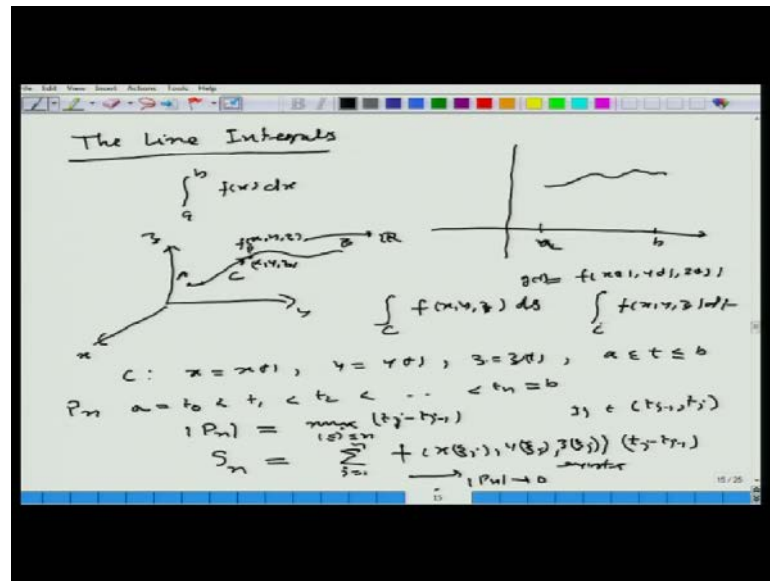 File Edit View Insert Actions Tools Help
The Line Integrals
∫_a^b f(x) dx
a b
z y x
A C B
f(x,y,z) → ℝ
(x,y,z)
g(t) = f(x(t), y(t), z(t))
∫_C f(x,y,z) ds ∫_C f(x,y,z) dt
C: x = x(t), y = y(t), z = z(t), a ≤ t ≤ b
P_n a = t_0 < t_1 < t_2 < .. < t_n = b
|P_n| = max_{1≤j≤n} (t_j - t_{j-1}) ξ_j ∈ (t_{j-1}, t_j)
S_n = Σ_{j=1}^n f(x(ξ_j), y(ξ_j), z(ξ_j)) (t_j - t_{j-1})
→ |P_n| → 0
15 / 25
15